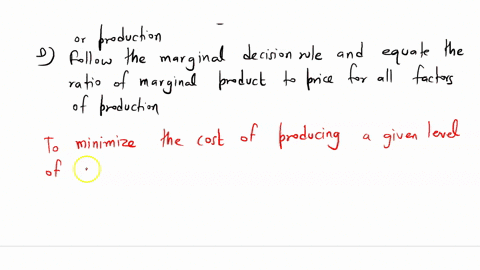 or production
D) Follow the marginal decision rule and equate the
ratio of marginal product to price for all factors
of production
To minimize the cost of producing a given level
of